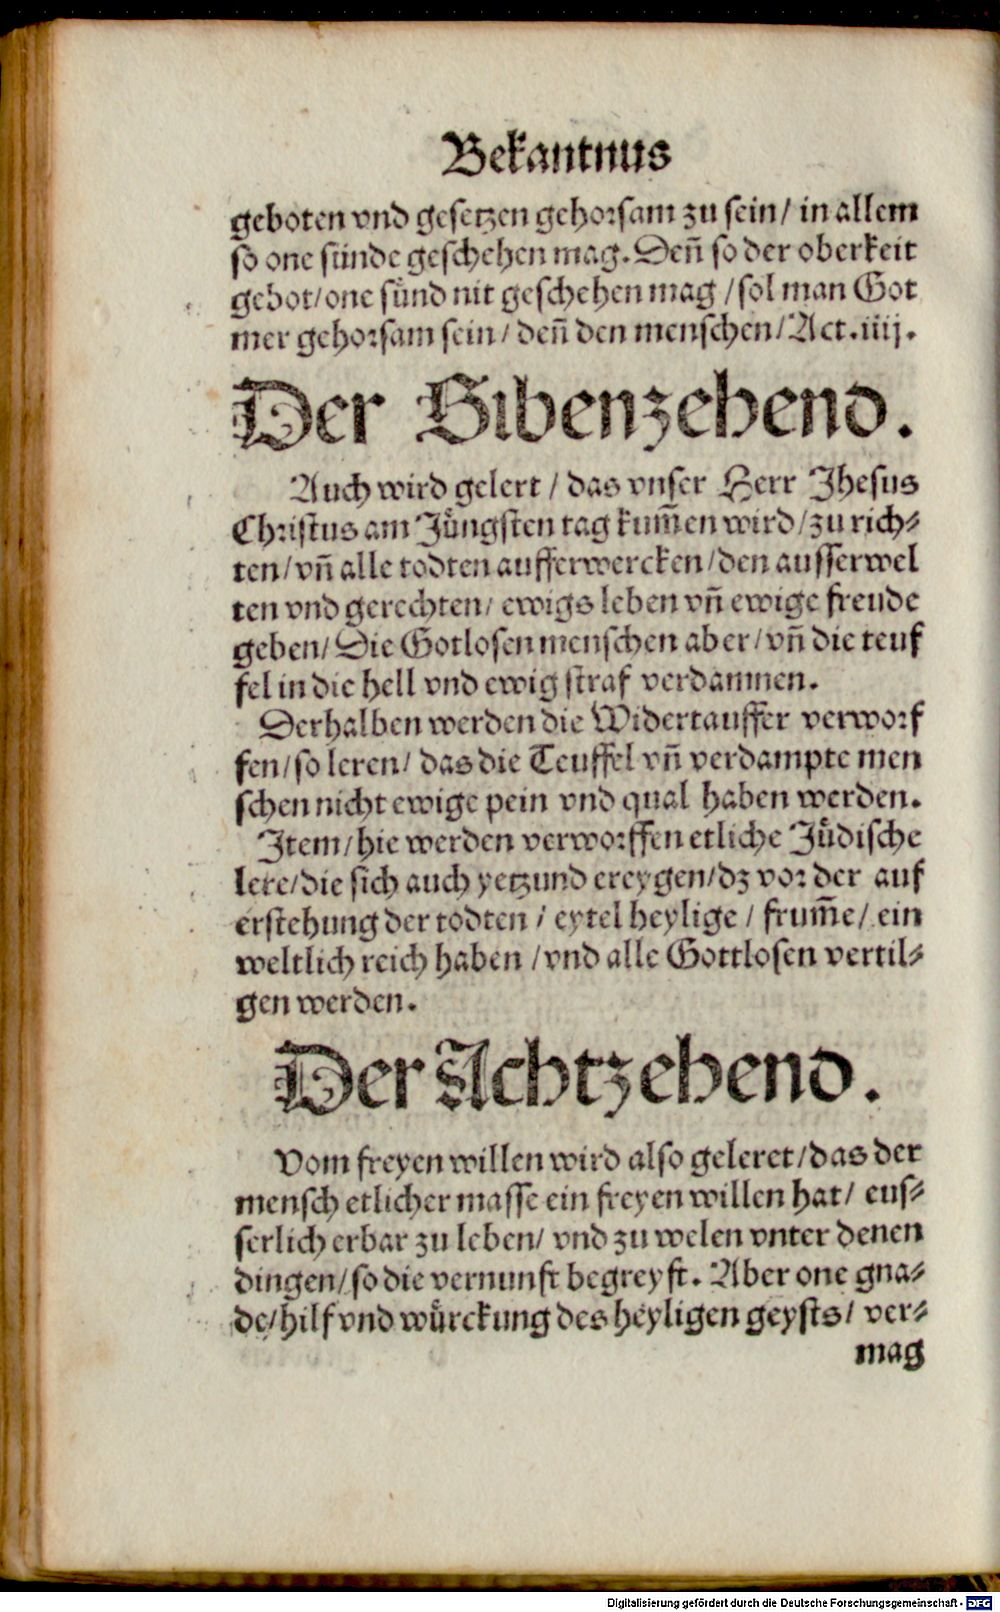 Bekantnus
geboten vnd gesetzen gehorsam zu sein/ in allem
so one sünde geschehen mag. Deñ so der oberkeit
gebot/one sünd nit geschehen mag /sol man Got
mer gehorsam sein/ deñ den menschen/Act.iiij.
Der Sibenzehend.
Auch wird gelert / das vnser Herr Jhesus
Christus am Jüngsten tag kum̃en wird/zu rich⸗
ten/vñ alle todten aufferwercken/den ausserwel
ten vnd gerechten/ ewigs leben vñ ewige freude
geben/ Die Gotlosen menschen aber/vñ die teuf
fel in die hell vnd ewig straf verdamnen.
Derhalben werden die Widertauffer verworf
fen/so leren/ das die Teuffel vñ verdampte men
schen nicht ewige pein vnd qual haben werden.
Item/hie werden verworffen etliche Jüdische
lere/die sich auch yetzund ereygen/dz vor der auf
erstehung der todten / eytel heylige / frum̃e/ ein
weltlich reich haben /vnd alle Gottlosen vertil⸗
gen werden.
Der Achtzehend.
Vom freyen willen wird also geleret/das der
mensch etlicher masse ein freyen willen hat/ eus⸗
serlich erbar zu leben/ vnd zu welen vnter denen
dingen/so die vernunft begreyft. Aber one gna⸗
de/hilf vnd würckung des heyligen geysts/ ver⸗
mag
Digitalisierung gefördert durch die Deutsche Forschungsgemeinschaft - DFG